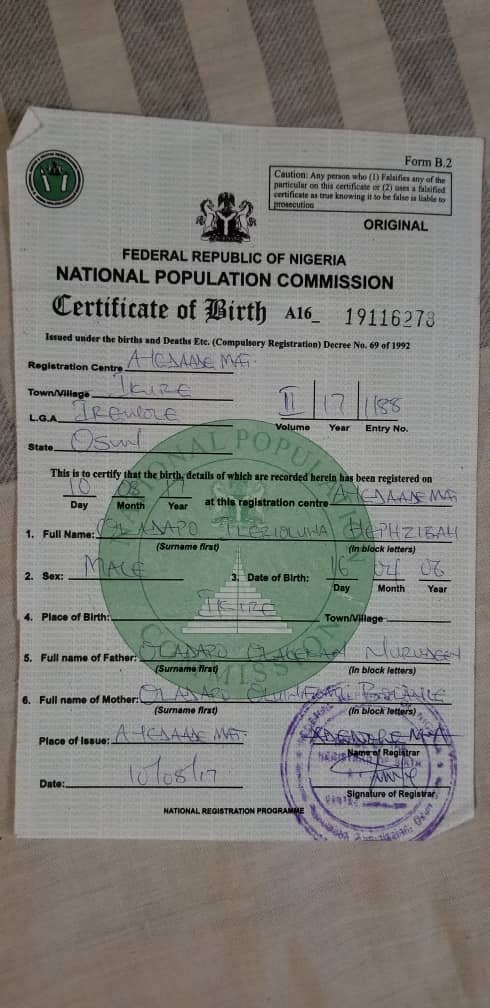 Form B.2
Caution: Any person who (1) Falsifies any of the
particular on this certificate or (2) uses a falsified
certificate as true knowing it to be false is liable to
prosecution
ORIGINAL
FEDERAL REPUBLIC OF NIGERIA
NATIONAL POPULATION COMMISSION
Certificate of Birth A16_ 19116278
Issued under the births and Deaths Etc. (Compulsory Registration) Decree No. 69 of 1992
Registration Centre
Town/Village IKIRE
L.G.A IREWOLE II 17 1188
Volume Year Entry No.
State OSUN
This is to certify that the birth, details of which are recorded herein has been registered on
10 08 17 at this registration centre
Day Month Year
1. Full Name: OLADAPO HEPHZIBAH
(Surname first) (In block letters)
2. Sex: MALE 3. Date of Birth: 16 04 06
Day Month Year
4. Place of Birth: IKIRE Town/Village
5. Full name of Father: OLADAPO
(Surname first) (In block letters)
6. Full name of Mother: OLADAPO
(Surname first) (In block letters)
Place of Issue:
Name of Registrar
Date: 10/08/17
Signature of Registrar
NATIONAL REGISTRATION PROGRAMME